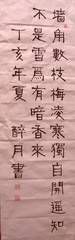 墙角數枝梅凌寒獨自開遥知
不是雪爲有暗香來
丁亥年夏 醉月書